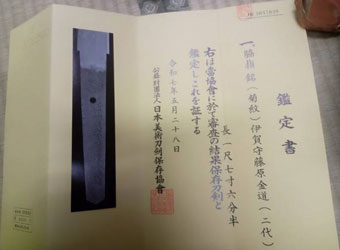 鑑定書
一、脇指 銘(菊紋)伊賀守藤原金道(二代)
長一尺七寸六分半
右は當協會に於て審査の結果保存刀剣と
鑑定しこれを証する
令和七年五月二十八日
公益財団法人 日本美術刀剣保存協會